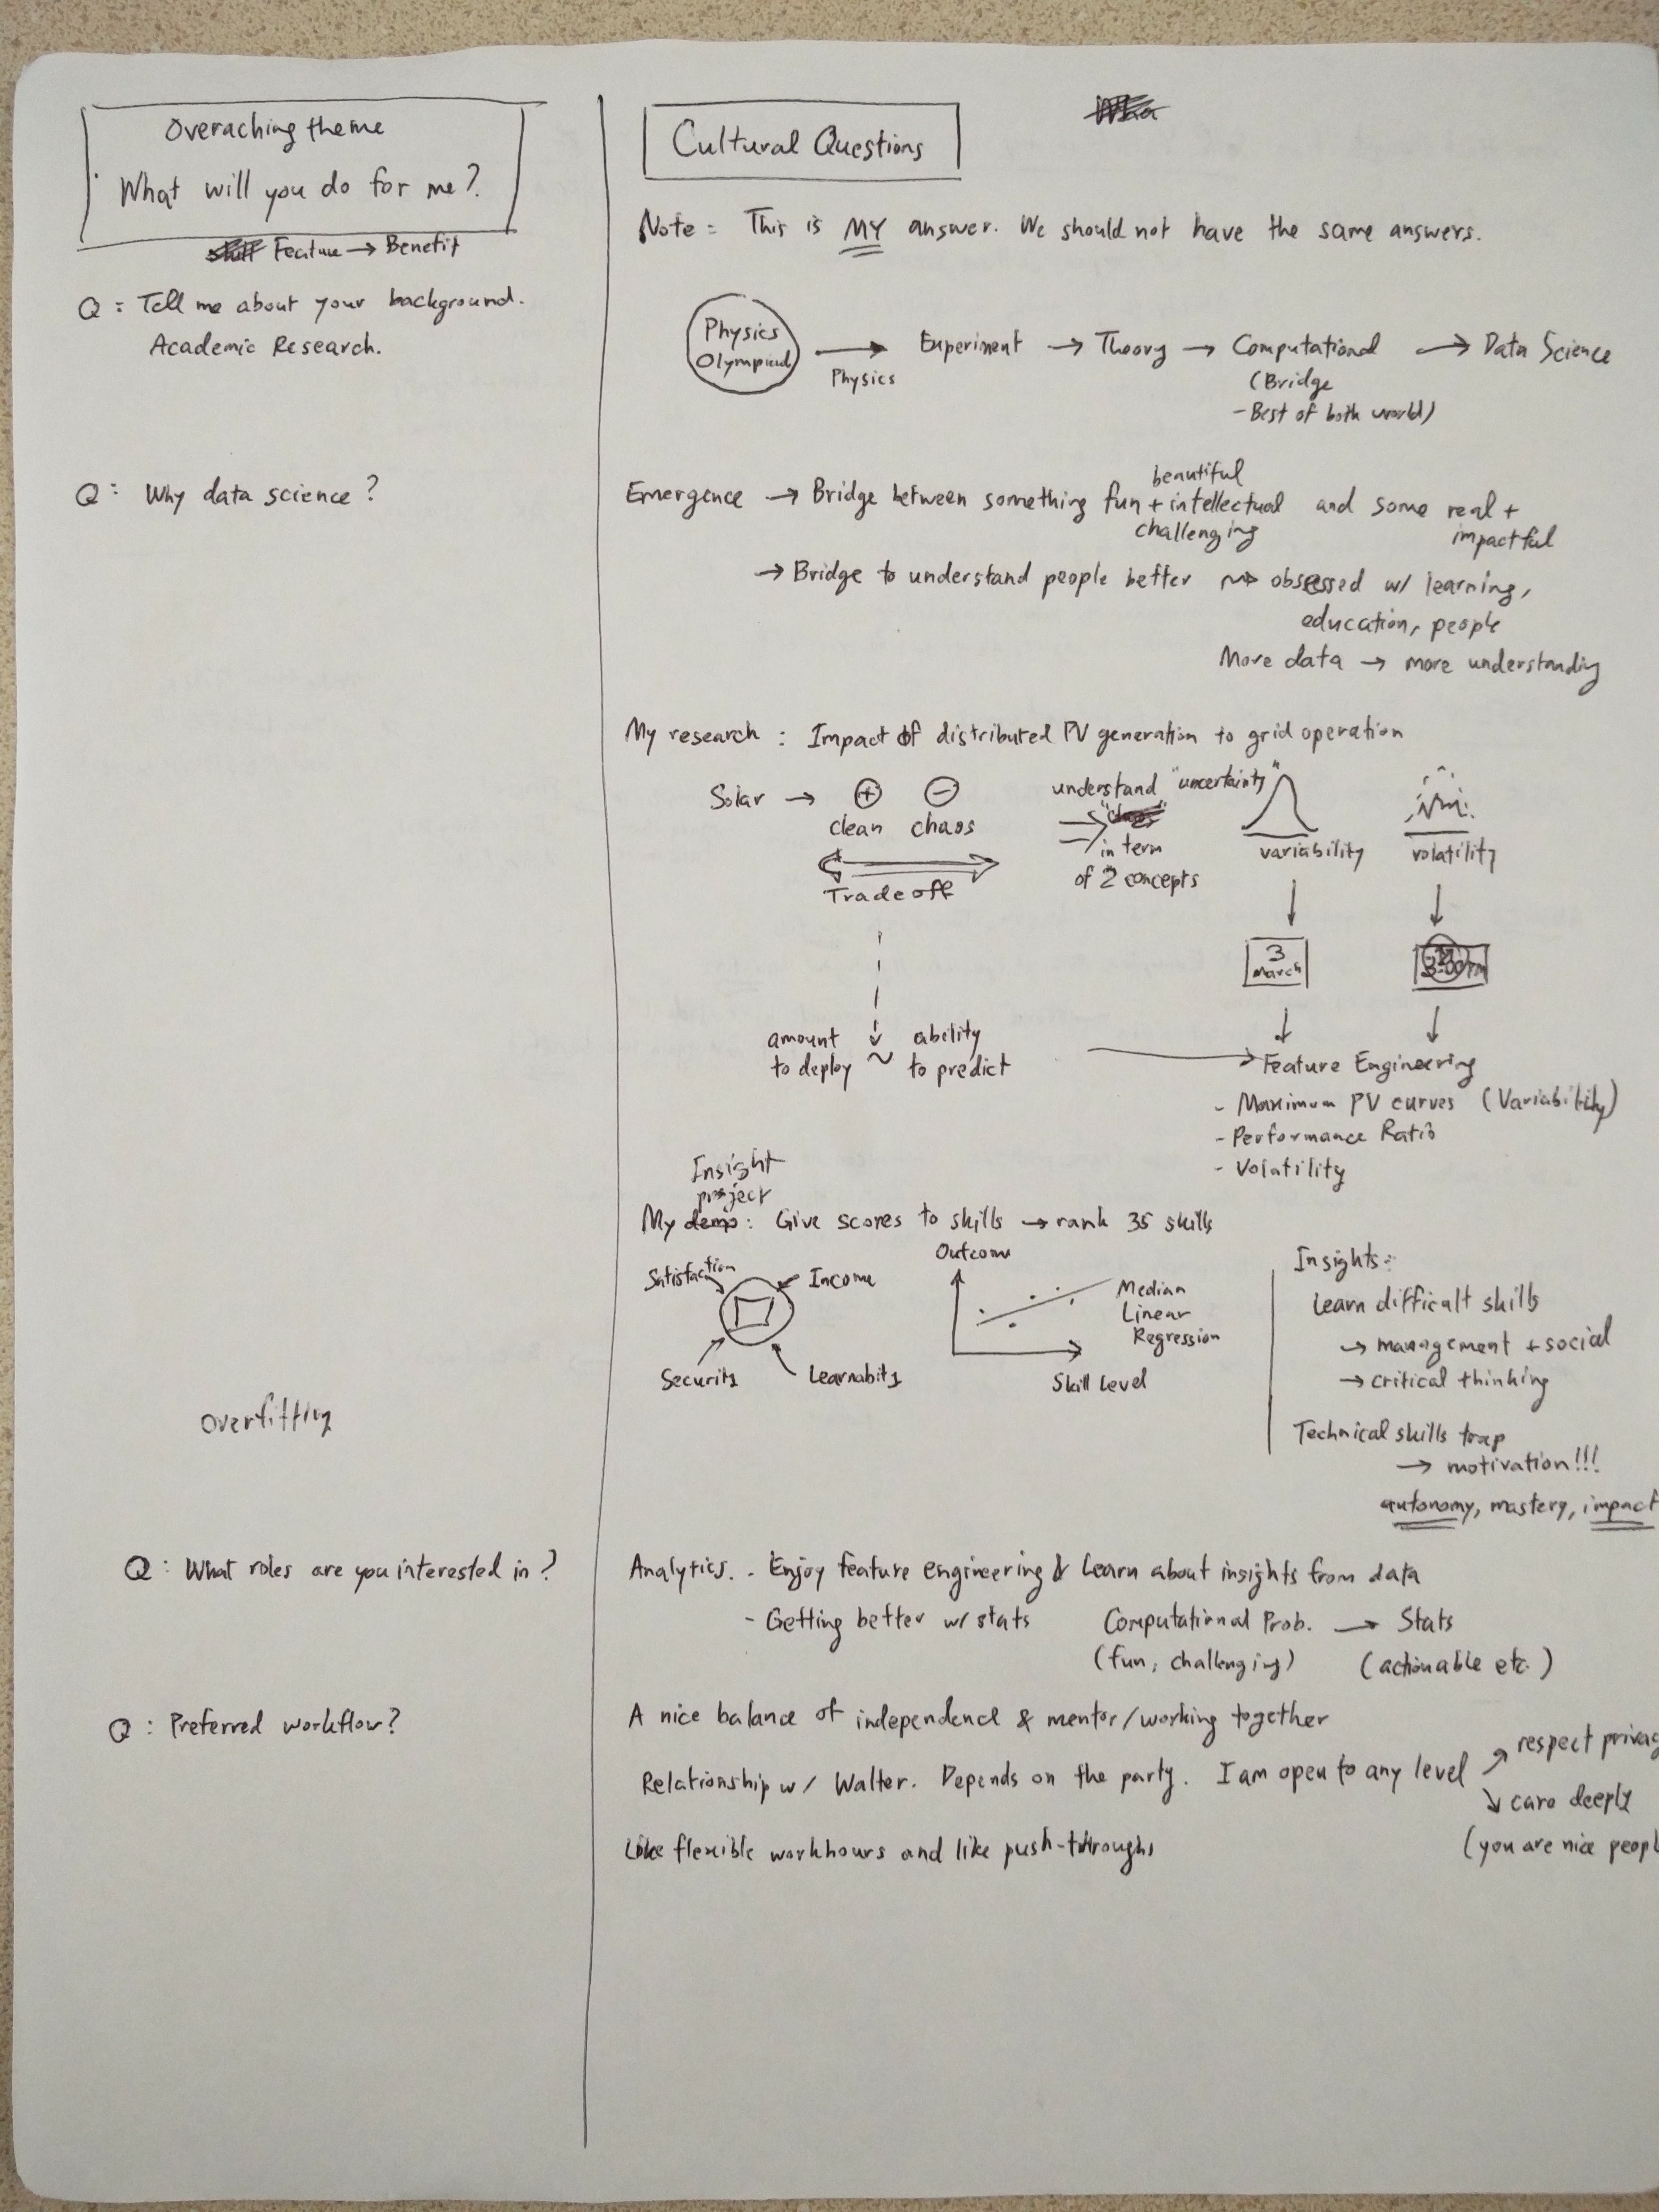 Overaching theme
What will you do for me?
Feature → Benefit
Q: Tell me about your background.
Academic Research.
Q: Why data science?
Overfitting
Q: What roles are you interested in?
Q: Preferred workflow?
Cultural Questions
Note: This is MY answer. We should not have the same answers.
Physics
Olympiad
→
Physics
Experiment → Theory → Computational → Data Science
(Bridge
- Best of both world)
beautiful
Emergence → Bridge between something fun + intellectual and some real +
challenging
impactful
→ Bridge to understand people better ⇝ obsessed w/ learning,
education, people
More data → more understanding
My research: Impact of distributed PV generation to grid operation
Solar → + -
clean chaos
Trade off
understand "uncertainty"
in term
of 2 concepts
variability volatility
3
March
amount ability
to deploy ~ to predict
Feature Engineering
- Maximum PV curves (Variability)
- Performance Ratio
- Volatility
Insight
project
My demo: Give scores to skills → rank 35 skills
Satisfaction
Income
Security
Learnability
Outcome
Median
Linear
Regression
Skill level
Insights:
Learn difficult skills
→ management + social
→ critical thinking
Technical skills trap
→ motivation!!!
autonomy, mastery, impact
Analytics. - Enjoy feature engineering & Learn about insights from data
- Getting better w/ stats Computational Prob. → Stats
(fun, challenging) (actionable etc.)
A nice balance of independence & mentor/working together
Relationship w/ Walter. Depends on the party. I am open to any level
↗ respect privac
↘ care deeply
(you are nice peopl
Like flexible workhours and like push-throughs